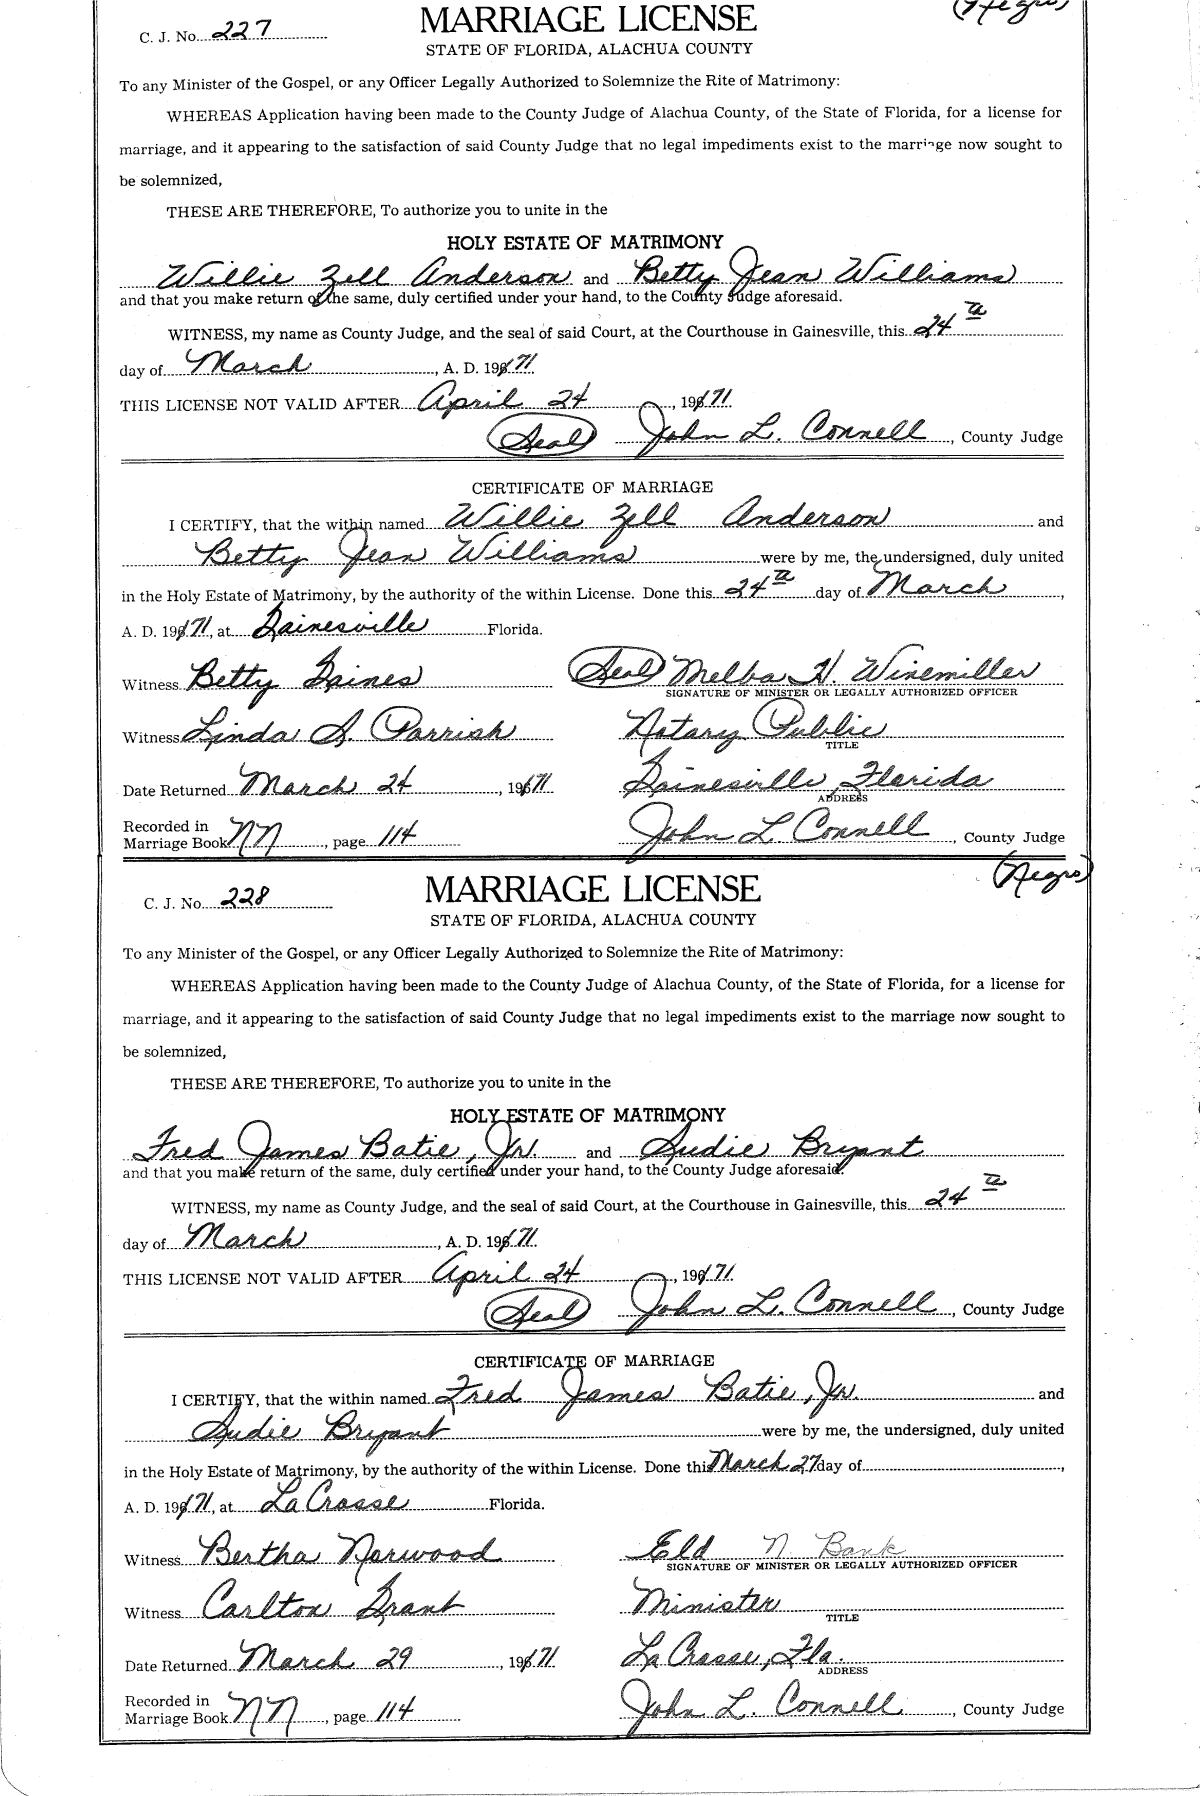 (Negro)
C. J. No. 227
MARRIAGE LICENSE
STATE OF FLORIDA, ALACHUA COUNTY
To any Minister of the Gospel, or any Officer Legally Authorized to Solemnize the Rite of Matrimony:
WHEREAS Application having been made to the County Judge of Alachua County, of the State of Florida, for a license for
marriage, and it appearing to the satisfaction of said County Judge that no legal impediments exist to the marriage now sought to
be solemnized,
THESE ARE THEREFORE, To authorize you to unite in the
HOLY ESTATE OF MATRIMONY
Willie Zell Anderson and Betty Jean Williams
and that you make return of the same, duly certified under your hand, to the County Judge aforesaid.
WITNESS, my name as County Judge, and the seal of said Court, at the Courthouse in Gainesville, this 24th
day of March, A. D. 1971.
THIS LICENSE NOT VALID AFTER April 24, 1971.
(Seal) John L. Connell, County Judge
CERTIFICATE OF MARRIAGE
I CERTIFY, that the within named Willie Zell Anderson and
Betty Jean Williams were by me, the undersigned, duly united
in the Holy Estate of Matrimony, by the authority of the within License. Done this 24th day of March,
A. D. 1971, at Gainesville Florida.
Witness Betty Gaines (Seal) Melba H. Winemiller
SIGNATURE OF MINISTER OR LEGALLY AUTHORIZED OFFICER
Witness Linda S. Parrish Notary Public
TITLE
Date Returned March 24, 1971 Gainesville, Florida
ADDRESS
Recorded in
Marriage Book NN, page 114 John L. Connell, County Judge
(Negro)
C. J. No. 228
MARRIAGE LICENSE
STATE OF FLORIDA, ALACHUA COUNTY
To any Minister of the Gospel, or any Officer Legally Authorized to Solemnize the Rite of Matrimony:
WHEREAS Application having been made to the County Judge of Alachua County, of the State of Florida, for a license for
marriage, and it appearing to the satisfaction of said County Judge that no legal impediments exist to the marriage now sought to
be solemnized,
THESE ARE THEREFORE, To authorize you to unite in the
HOLY ESTATE OF MATRIMONY
Fred James Batie, Jr. and Sudie Bryant
and that you make return of the same, duly certified under your hand, to the County Judge aforesaid.
WITNESS, my name as County Judge, and the seal of said Court, at the Courthouse in Gainesville, this 24th
day of March, A. D. 1971.
THIS LICENSE NOT VALID AFTER April 24, 1971.
(Seal) John L. Connell, County Judge
CERTIFICATE OF MARRIAGE
I CERTIFY, that the within named Fred James Batie, Jr. and
Sudie Bryant were by me, the undersigned, duly united
in the Holy Estate of Matrimony, by the authority of the within License. Done this March 27 day of,
A. D. 1971, at La Crosse Florida.
Witness Bertha Norwood Eld N Bank
SIGNATURE OF MINISTER OR LEGALLY AUTHORIZED OFFICER
Witness Carlton Grant Minister
TITLE
Date Returned March 29, 1971 La Crosse, Fla.
ADDRESS
Recorded in
Marriage Book NN, page 114 John L. Connell, County Judge